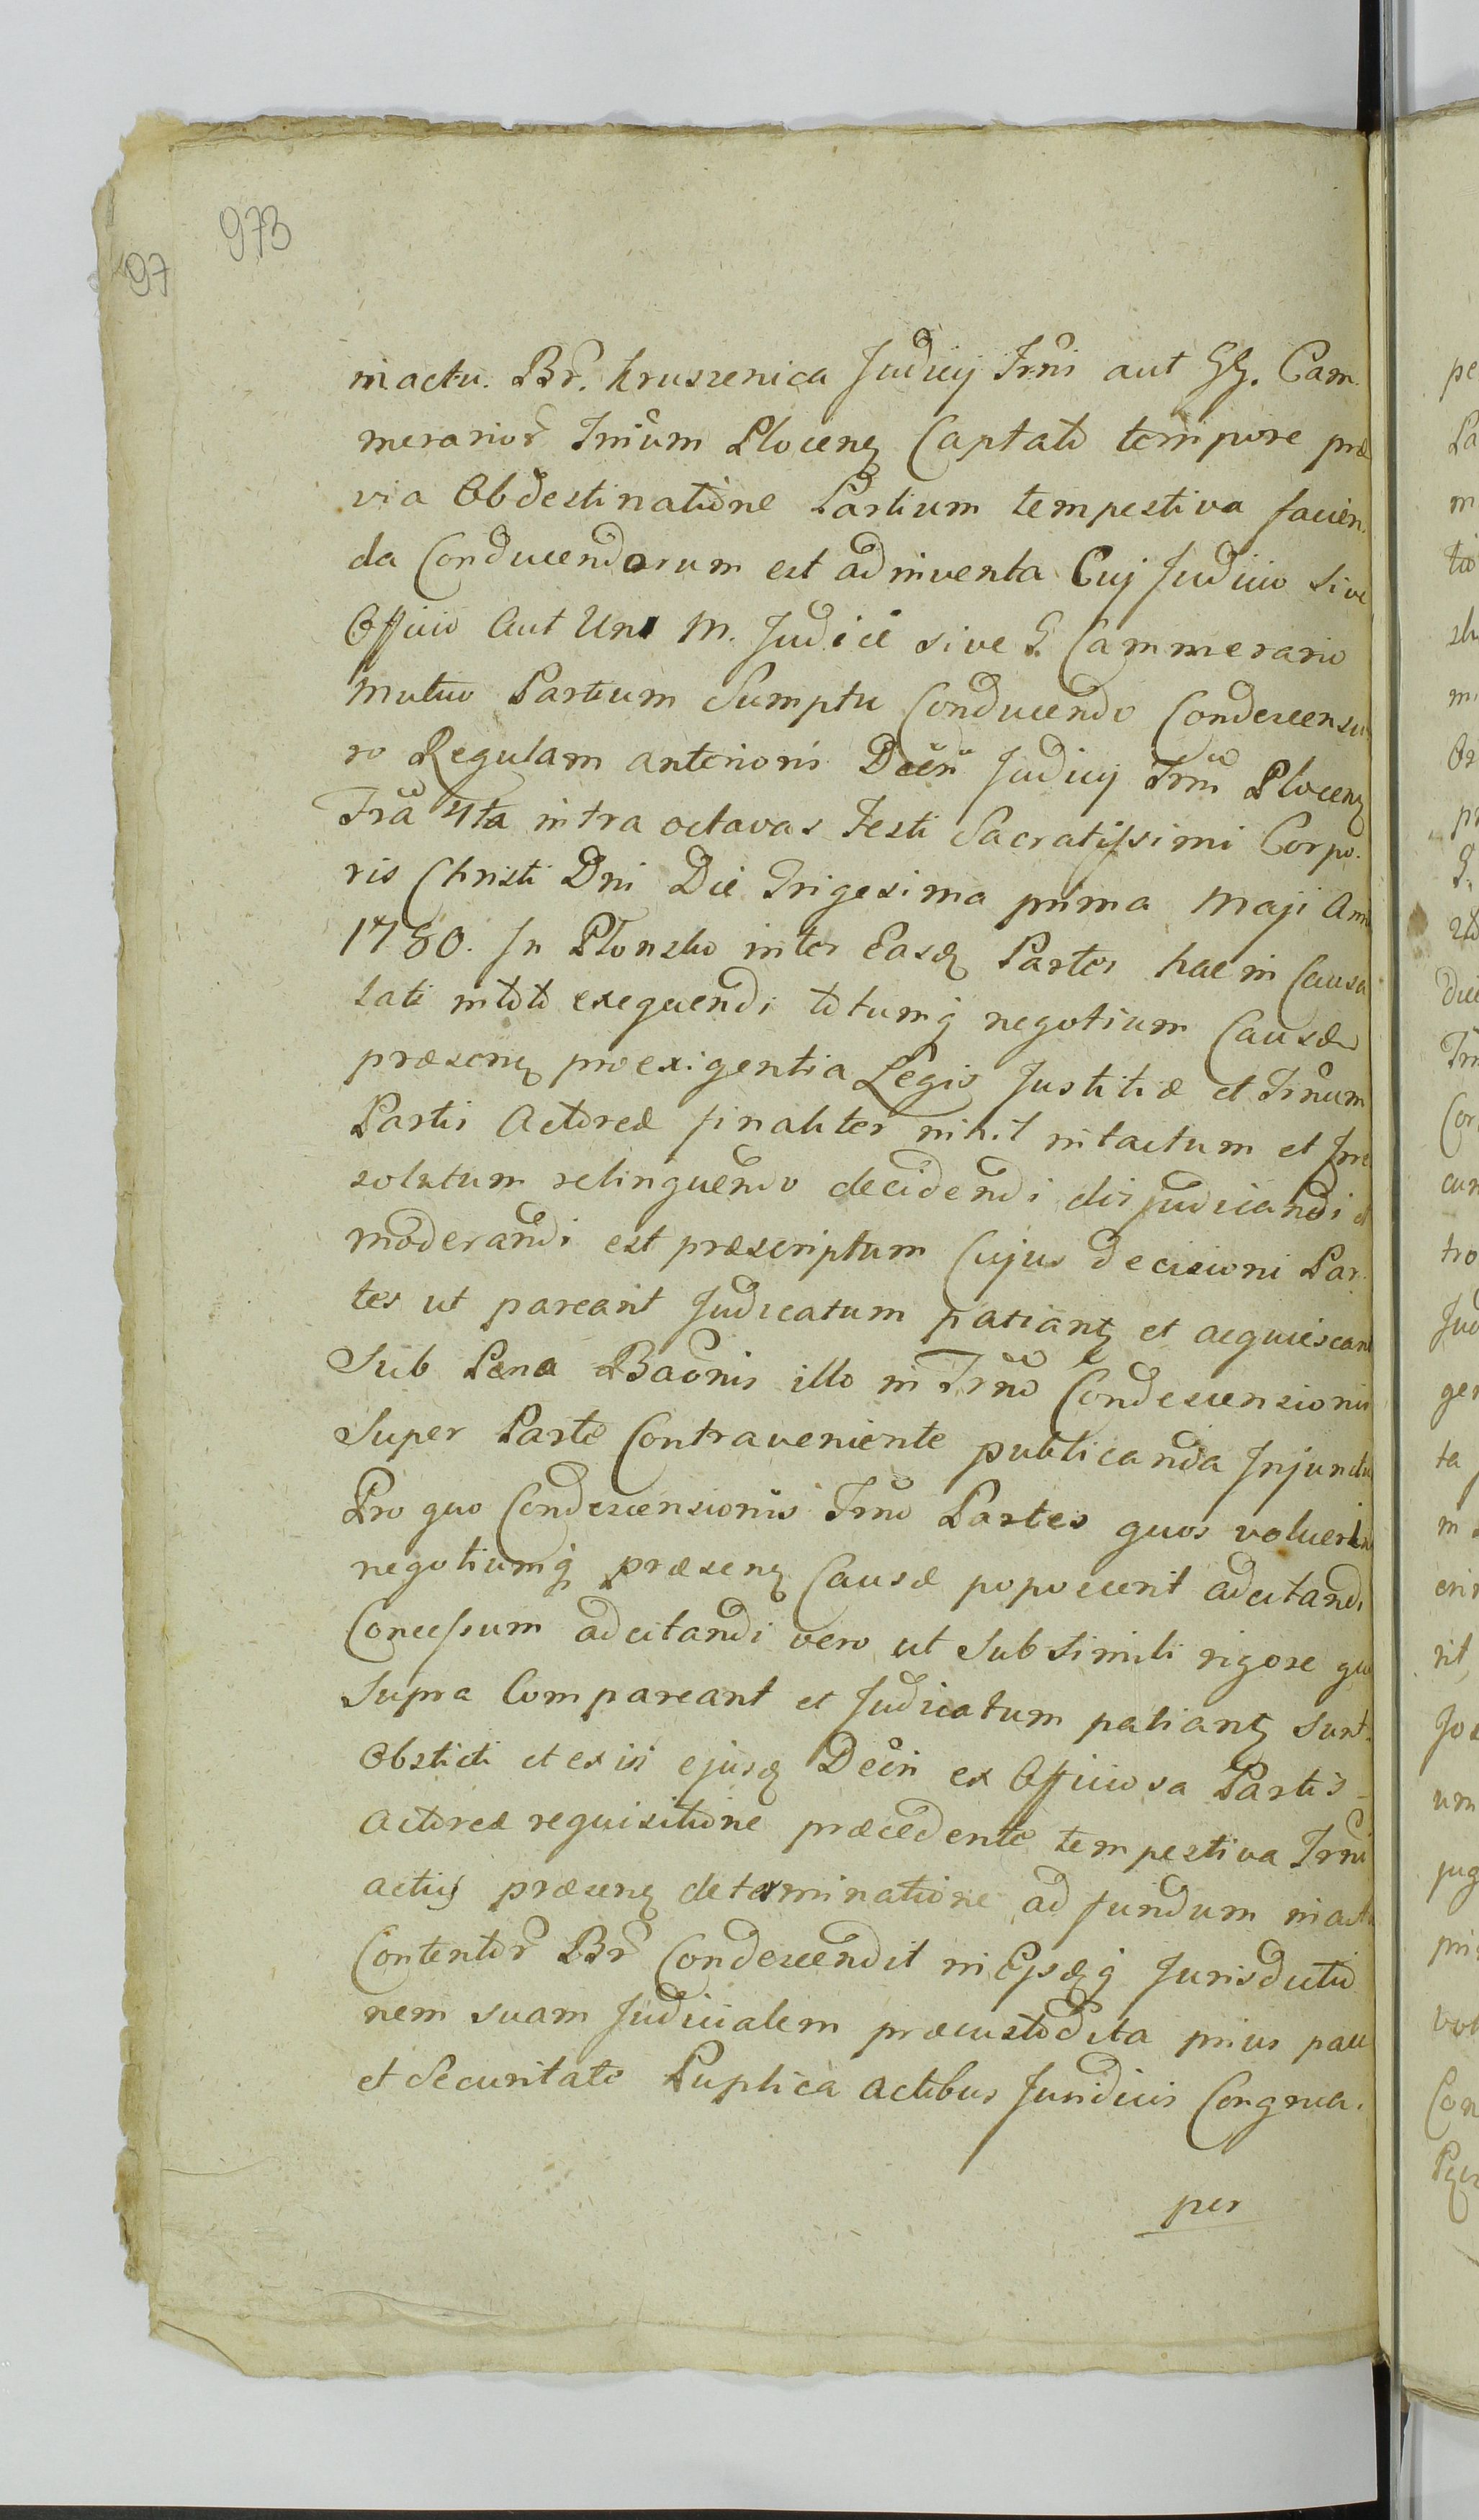 973
97
in actu. Br. Kruszenica Judicij Trnis aut GG. Cam
merarior Trnium Plocens Captato tempore præ
via Obdestinatione Partium tempestiva facien
da Conducendorum est adinventa Cuj Judicio Sive
Officio Aut Uni M. Judice sive G. Cammerario
Mutuo Partium Sumptu Conducendo Condescensu
ro Regulam anterioris Dcën Judicij Trnis Plocens
Fria 4ta intra octavas Festi Sacratissimi Corpo
ris Christi Dni Die Trigesima prima Maji Ann
1780. In Plonsko inter Easq Partes hac in Causa
Lati in toto exequendi totumq negotium Causæ
præsens pro exigentia Legis Justitiæ et Trnum
Partis Actoreæ finaliter nihil intactum et Irre
solutum relinquendo decidendi disjudicandi et
moderandi est præscriptum Cujus decisioni Par
tes ut pareant Judicatum patiant et acquiescant
Sub Pæna Baonis illo in Trno Condescensionis
Super Parte Contraveniente publicanda Injunctu
Pro quo Condescensionis Trno Partes quos voluerint
negotiumq præsens Causæ poposcerit adcitandi
Concessum adcitandi vero ut Sub Simili rigore quo
Supra Compareant et Judicatum patiant Sunt
Obsticti et ex vi ejusq Decri ex Officiosa Partis
Actoreæ requisitione præcedente tempestiva Trni
actus præsens determinatione ad fundum in actu
Contentor Br Condescendit in Epsaq Jurisdictio
nem suam Judicialem præcustodita prius pace
et Securitate Puplica Actibus Juridicis Congrua.
per